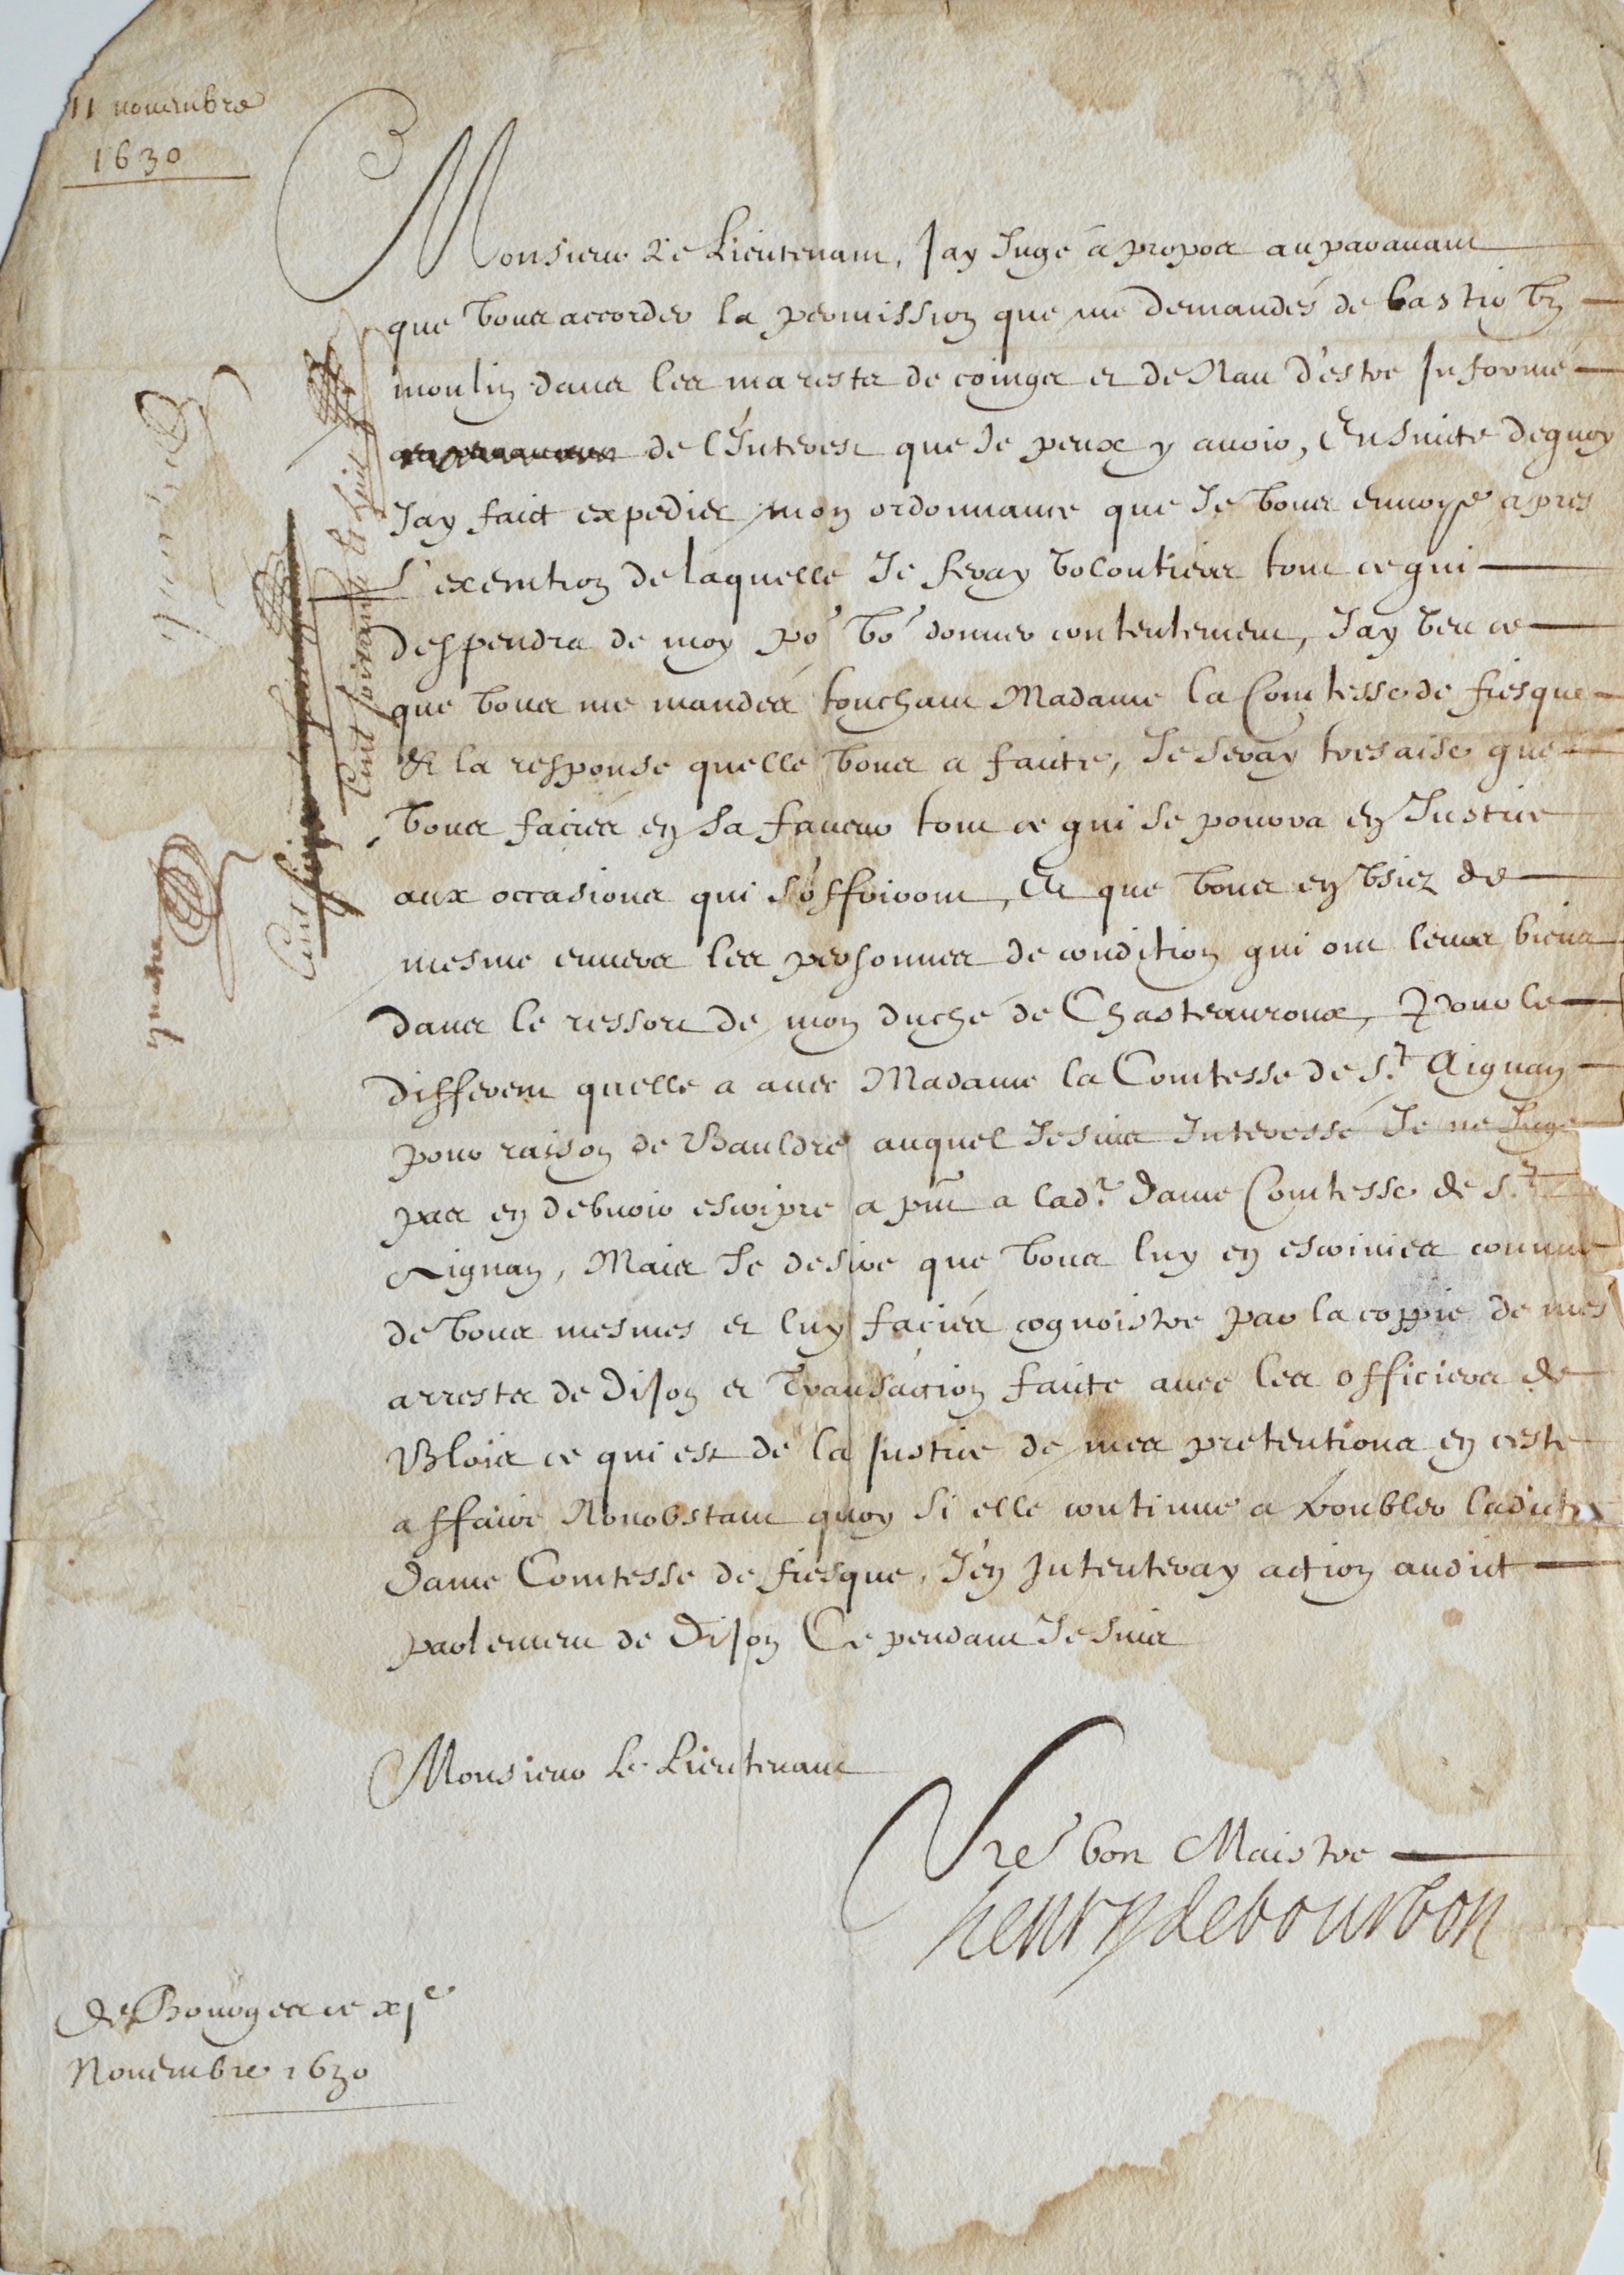 11 nouembre
1630
Monsieur Le Lieutenant, Jay Jugé a propos auparauant
que vous accorder la permission que me demandés de bastir vn
moulin dans les marests de coings et de Nau d'estre Informé
de l'Interest que Je peux y auoir, Ensuitte dequoy
Jay faict expedier mon ordonnance que Je vous enuoye apres
L'execution de laquelle Je feray volontiers tout ce qui
despendra de moy po.r vo.s donner contentement, Jay veu ce
que vous me mandés touchant Madame la Comtesse de fiesque
& la response quelle vous a faitte, Je seray tres aise que
vous faciés en sa faueur tout ce qui se pourra en Justice
aux occasions qui s'offriront, Et que vous en vsiez de
mesme enuers les personnes de condition qui ont leurs biens
dans le ressort de mon duché de Chasteauroux, Pour le
different quelle a auec Madame la Comtesse de S.t Aignan
pour raison de Bauldre auquel Je suis Interessé Je ne Juge
pas en debuoir escripre a pnt a lad.e dame Comtesse de S.t
Aignan, Mais Je desire que vous luy en escriuies comme
de vous mesmes et luy faciés cognoistre par la coppie de mes
arrests de Dijon et transaction faitte auec les officiers de
Blois ce qui est de la Justice de mes pretentions en ceste
affaire Nonobstant quoy si elle continue a troubler ladicte
Dame Comtesse de fiesque, J'en Intenteray action audict
parlement de Dijon Ce pendant Je suis
Monsieur Le Lieutenant
Vre bon Maistre
henry de bourbon
De Bourges ce xj.e
Nouembre 1630
Cent soixante & huit